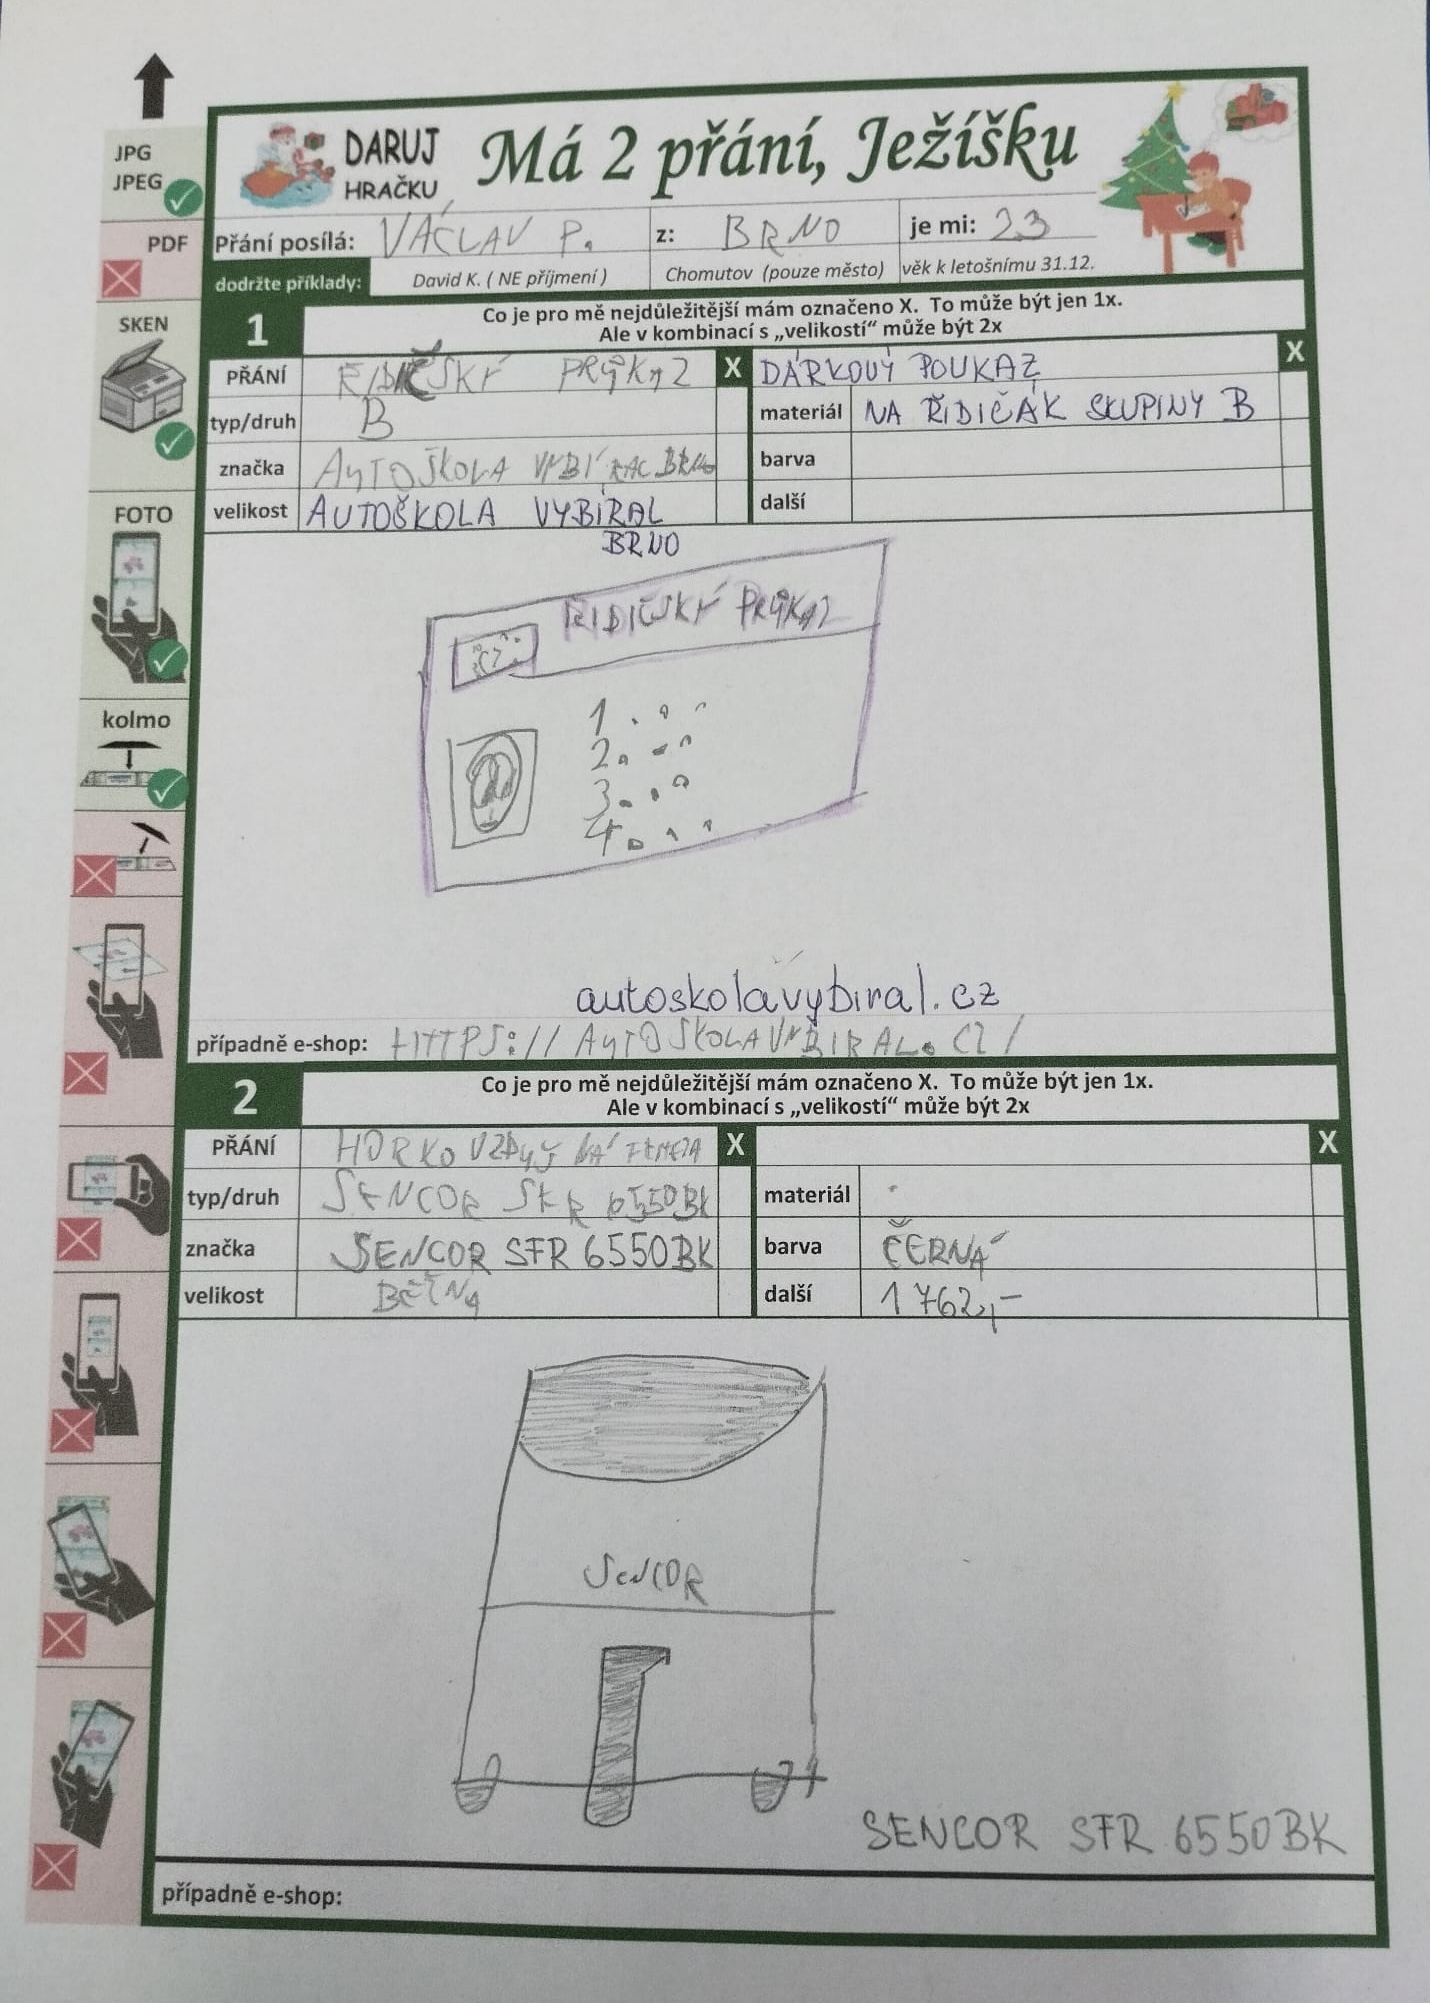 JPG
JPEG
PDF
SKEN
FOTO
kolmo
DARUJ
HRAČKU
Má 2 přání, Ježíšku
Přání posílá: VÁCLAV P. z: BRNO je mi: 23
dodržte příklady: David K. ( NE příjmení ) Chomutov (pouze město) věk k letošnímu 31.12.
1 Co je pro mě nejdůležitější mám označeno X. To může být jen 1x.
Ale v kombinací s „velikostí“ může být 2x
PŘÁNÍ ŘIDIČSKÝ PRŮKAZ X DÁRKOVÝ POUKAZ X
typ/druh B materiál NA ŘIDIČÁK SKUPINY B
značka AUTOŠKOLA VYBÍRAL BRNO barva
velikost AUTOŠKOLA VYBÍRAL další
BRNO
ŘIDIČSKÝ PRŮKAZ
CZ
1...
2...
3...
4...
autoskolavybiral.cz
případně e-shop: HTTPS://AUTOSKOLAVYBIRAL.CZ/
2 Co je pro mě nejdůležitější mám označeno X. To může být jen 1x.
Ale v kombinací s „velikostí“ může být 2x
PŘÁNÍ HORKOVZDUŠNÁ X X
typ/druh SENCOR SFR 6550BK materiál
značka SENCOR SFR 6550BK barva ČERNÁ
velikost další 1762,-
SENCOR
SENCOR SFR 6550BK
případně e-shop: